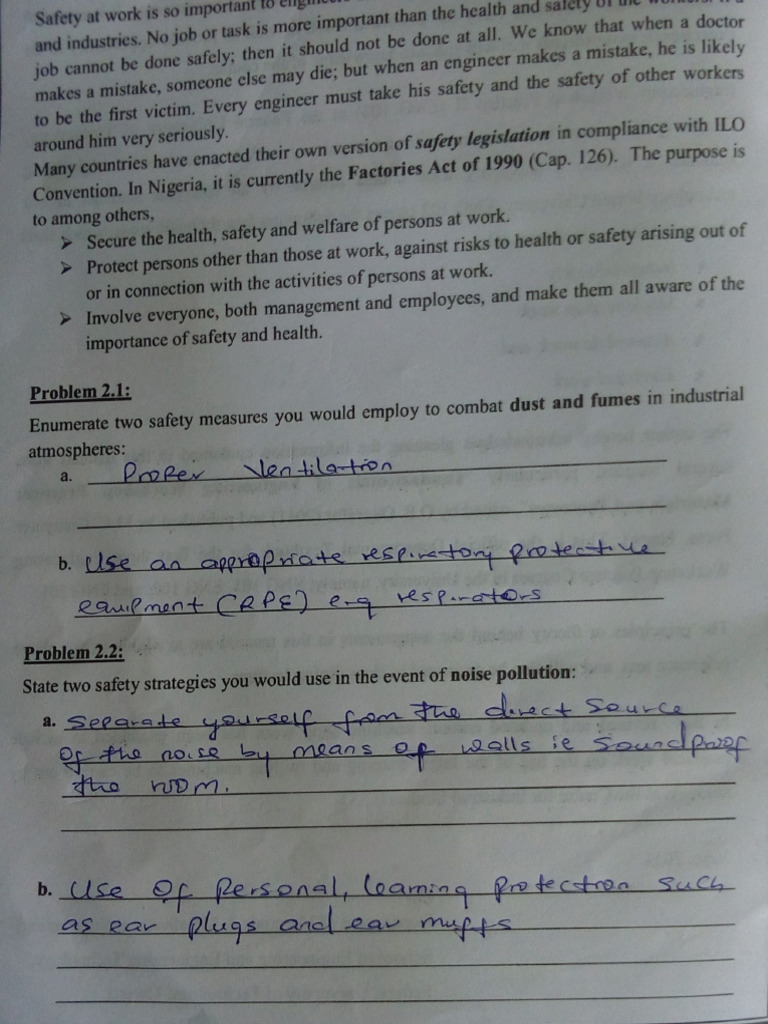 Safety at work is so important to
and industries. No job or task is more important than the health and safety of the
job cannot be done safely; then it should not be done at all. We know that when a doctor
makes a mistake, someone else may die; but when an engineer makes a mistake, he is likely
to be the first victim. Every engineer must take his safety and the safety of other workers
around him very seriously.
Many countries have enacted their own version of safety legislation in compliance with ILO
Convention. In Nigeria, it is currently the Factories Act of 1990 (Cap. 126). The purpose is
to among others,
➢ Secure the health, safety and welfare of persons at work.
➢ Protect persons other than those at work, against risks to health or safety arising out of
or in connection with the activities of persons at work.
➢ Involve everyone, both management and employees, and make them all aware of the
importance of safety and health.
Problem 2.1:
Enumerate two safety measures you would employ to combat dust and fumes in industrial
atmospheres:
a. Proper Ventilation
b. Use an appropriate respiratory protective
equipment (RPE) e.g respirators
Problem 2.2:
State two safety strategies you would use in the event of noise pollution:
a. Separate yourself from the direct source
of the noise by means of walls ie Soundproof
the room.
b. Use of Personal, learning protection such
as ear plugs and ear muffs